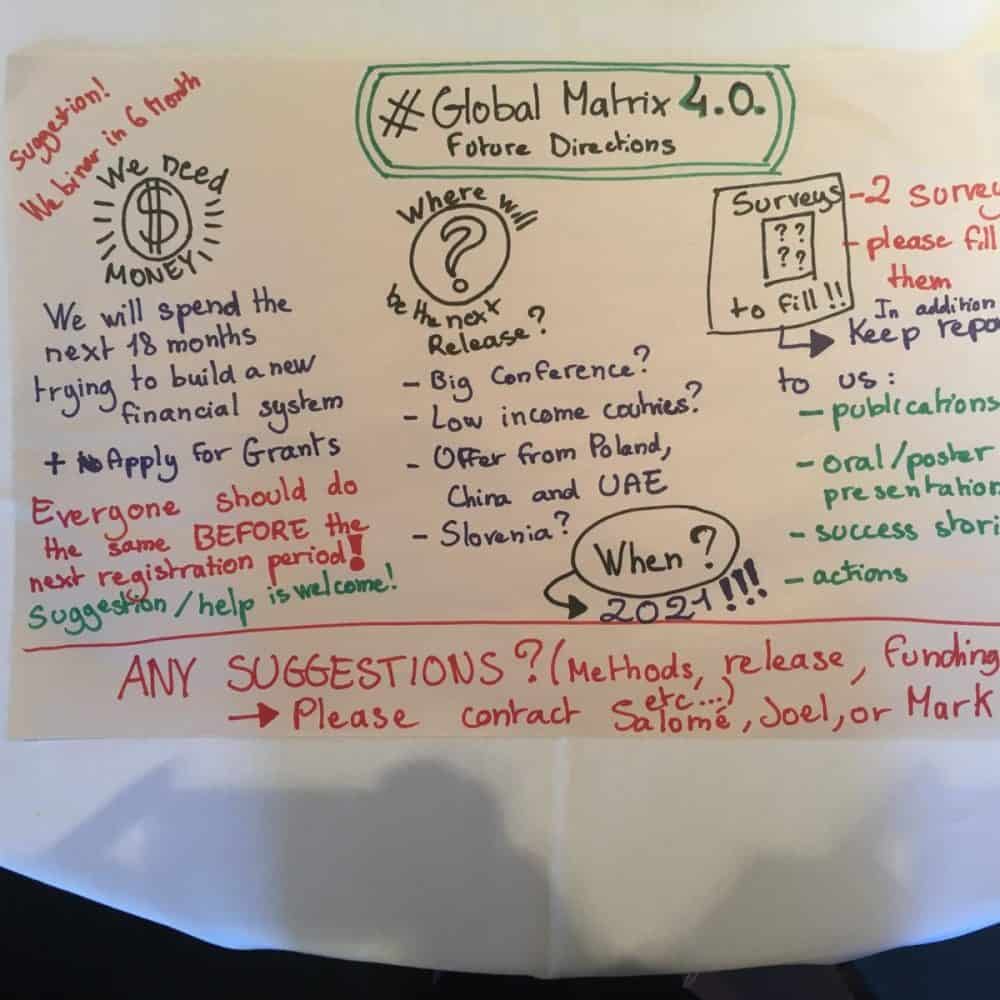 # Global Matrix 4.0.
Future Directions
Suggestion!
Webinar in 6 Month
We need
$
MONEY!
We will spend the
next 18 months
trying to build a new
financial system
+ Apply for Grants
Everyone should do
the same BEFORE the
next registration period!
Suggestion/help is welcome!
Where will
?
be the next
Release?
- Big Conference?
- Low income coutries?
- Offer from Poland,
China and UAE
- Slovenia?
When?
2021!!!
Surveys
? ?
? ?
to fill!!
- 2 surve
- please fill
them
In addition
Keep repo
to us:
- publications
- oral/poster
presentation
- success stori
- actions
ANY SUGGESTIONS? (Methods, release, funding
etc...)
→ Please contact Salomé, Joel, or Mark